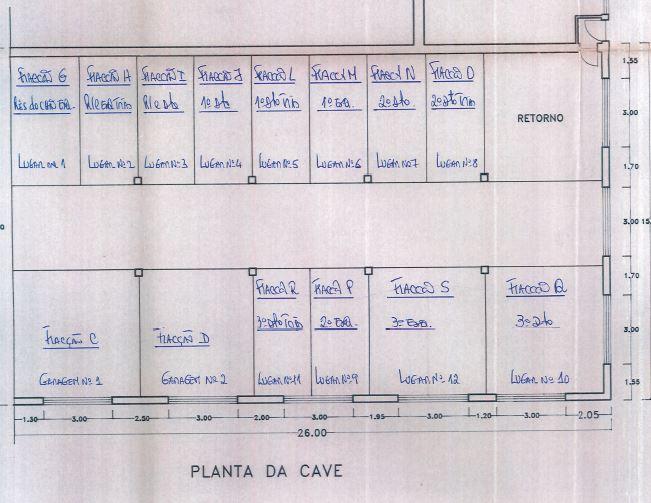 Fracção G
Rés do chão Esq.
Lugar nº 1
Fracção H
R/c Esq Trás
Lugar Nº 2
Fracção I
R/c Dto
Lugar Nº 3
Fracção J
1º Dto
Lugar Nº 4
Fracção L
1º Dto Trás
Lugar Nº 5
Fracção M
1º Esq.
Lugar Nº 6
Fracção N
2º Dto
Lugar Nº 7
Fracção O
2º Dto Trás
Lugar Nº 8
RETORNO
1.55
3.00
1.70
3.00
1.70
3.00
1.55
Fracção C
Garagem Nº 1
Fracção D
Garagem Nº 2
Fracção R
3º Dto Trás
Lugar Nº 11
Fracção P
2º Esq.
Lugar Nº 9
Fracção S
3º Esq.
Lugar Nº 12
Fracção Q
3º Dto
Lugar Nº 10
1.30 3.00 2.50 3.00 2.00 3.00 1.95 3.00 1.20 3.00 2.05
26.00
PLANTA DA CAVE